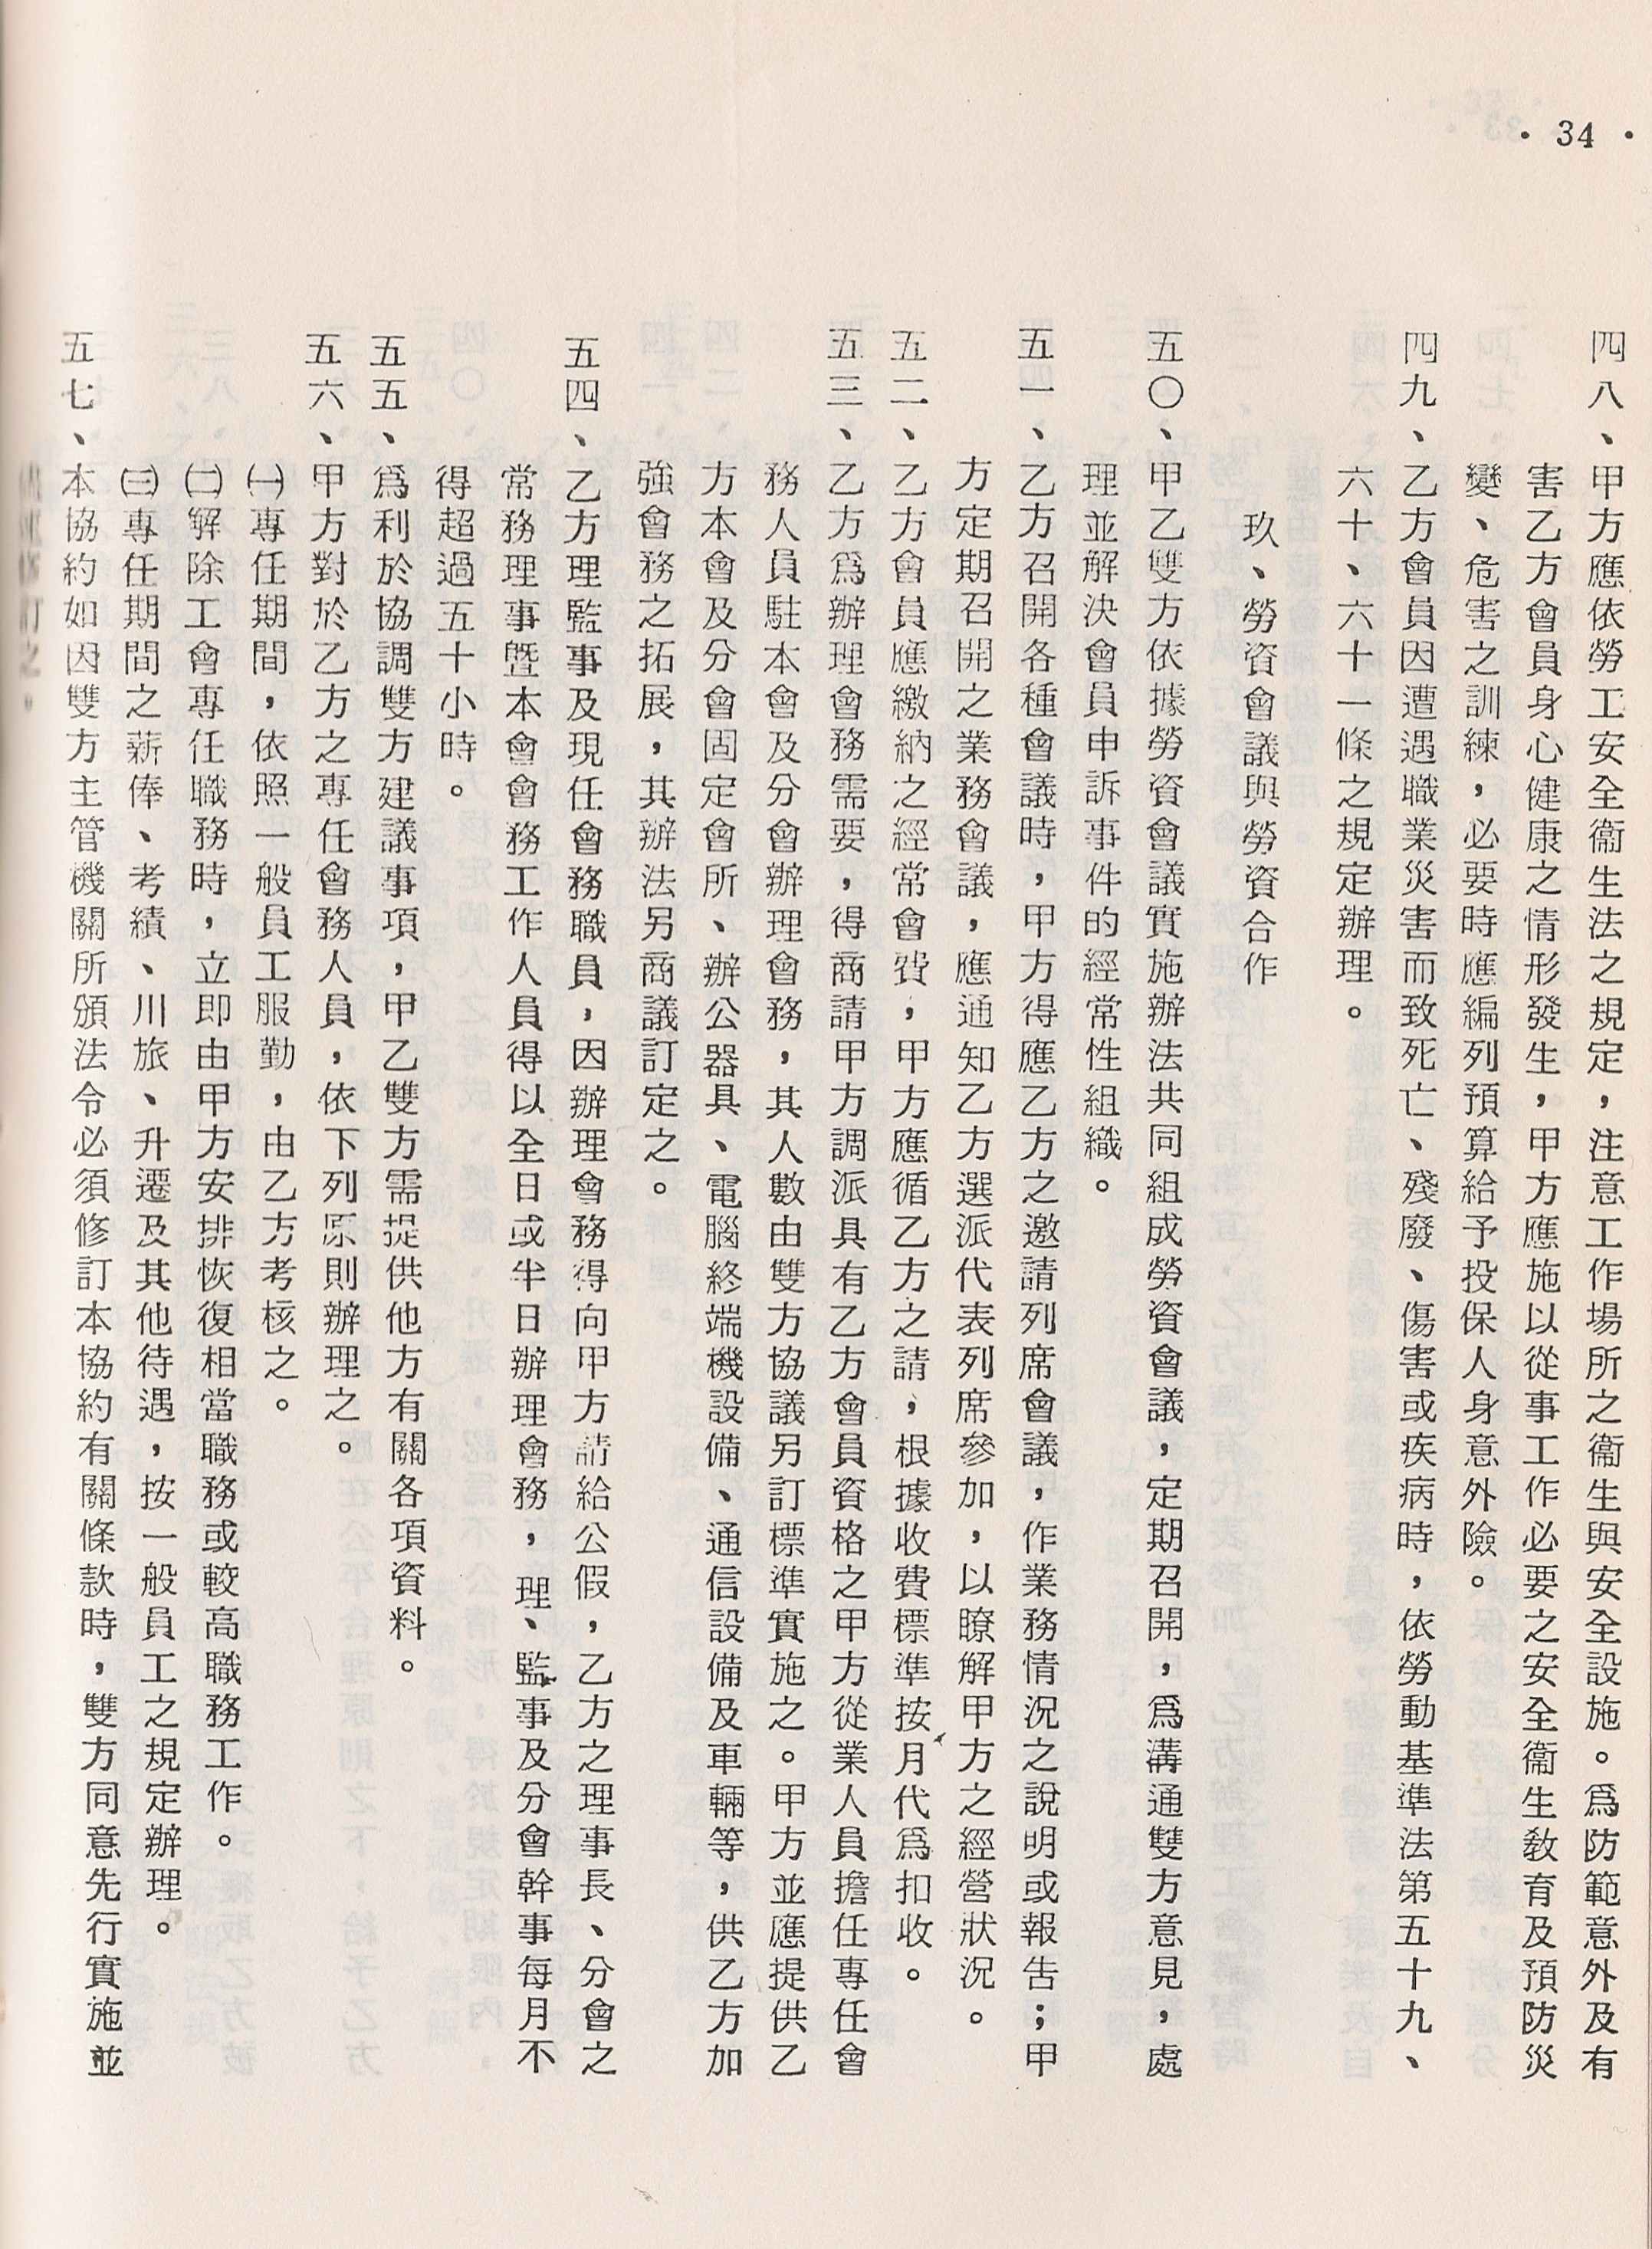 • 34 •
四八、甲方應依勞工安全衞生法之規定，注意工作場所之衞生與安全設施。爲防範意外及有
害乙方會員身心健康之情形發生，甲方應施以從事工作必要之安全衞生敎育及預防災
變、危害之訓練，必要時應編列預算給予投保人身意外險。
四九、乙方會員因遭遇職業災害而致死亡、殘廢、傷害或疾病時，依勞動基準法第五十九、
六十、六十一條之規定辦理。
玖、勞資會議與勞資合作
五〇、甲乙雙方依據勞資會議實施辦法共同組成勞資會議，定期召開，爲溝通雙方意見，處
理並解決會員申訴事件的經常性組織。
五一、乙方召開各種會議時，甲方得應乙方之邀請列席會議，作業務情況之說明或報告；甲
方定期召開之業務會議，應通知乙方選派代表列席參加，以瞭解甲方之經營狀況。
五二、乙方會員應繳納之經常會費，甲方應循乙方之請，根據收費標準按月代爲扣收。
五三、乙方爲辦理會務需要，得商請甲方調派具有乙方會員資格之甲方從業人員擔任專任會
務人員駐本會及分會辦理會務，其人數由雙方協議另訂標準實施之。甲方並應提供乙
方本會及分會固定會所、辦公器具、電腦終端機設備、通信設備及車輛等，供乙方加
強會務之拓展，其辦法另商議訂定之。
五四、乙方理監事及現任會務職員，因辦理會務得向甲方請給公假，乙方之理事長、分會之
常務理事曁本會會務工作人員得以全日或半日辦理會務，理、監事及分會幹事每月不
得超過五十小時。
五五、爲利於協調雙方建議事項，甲乙雙方需提供他方有關各項資料。
五六、甲方對於乙方之專任會務人員，依下列原則辦理之。
㈠專任期間，依照一般員工服勤，由乙方考核之。
㈡解除工會專任職務時，立即由甲方安排恢復相當職務或較高職務工作。
㈢專任期間之薪俸、考績、川旅、升遷及其他待遇，按一般員工之規定辦理。
五七、本協約如因雙方主管機關所頒法令必須修訂本協約有關條款時，雙方同意先行實施並
修訂之。